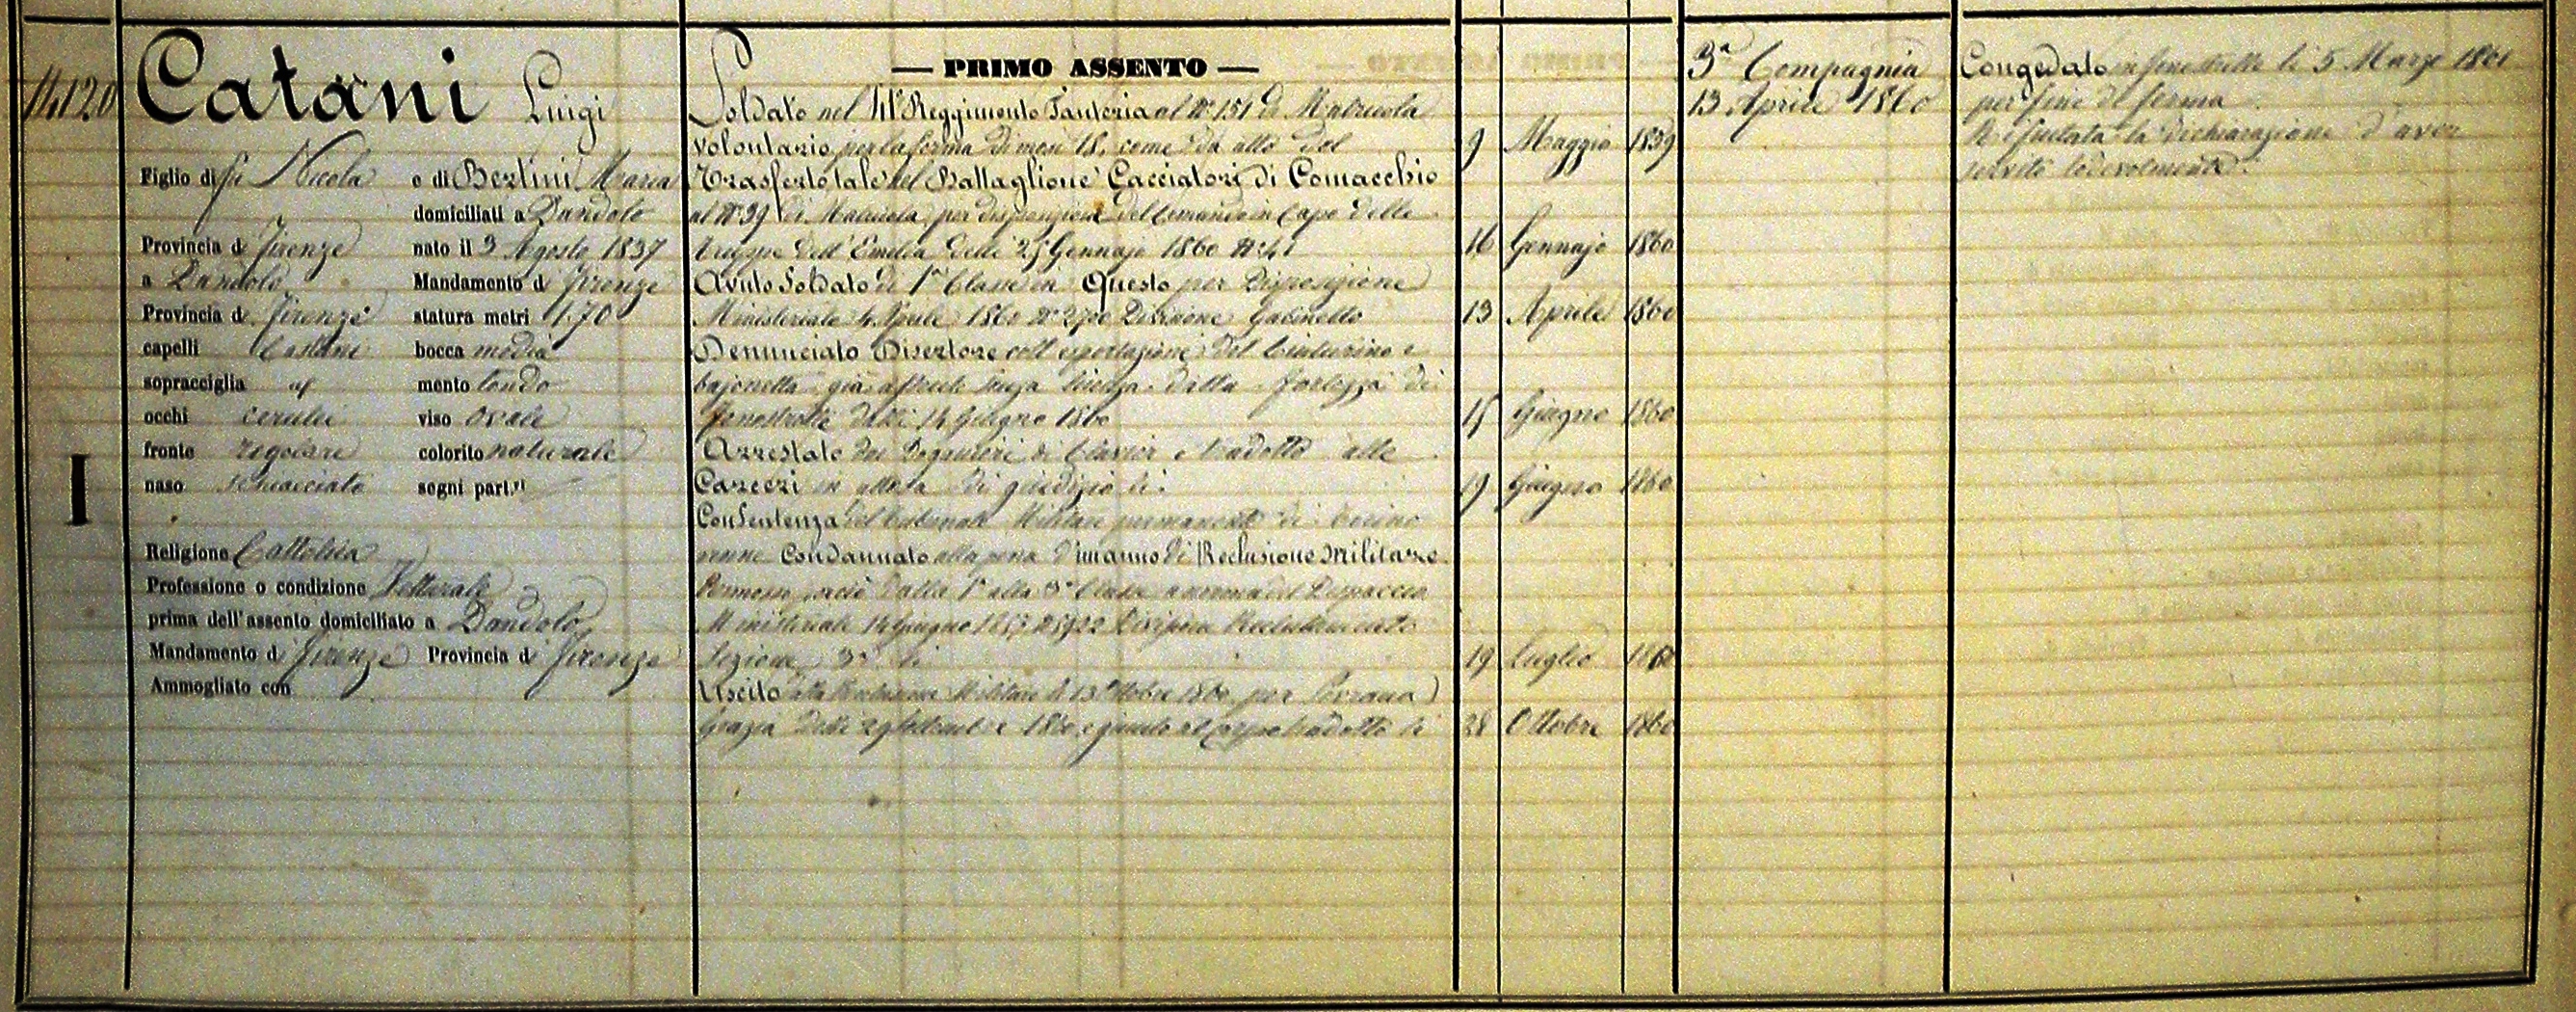 14120
Catani Luigi
Figlio di fu Nicola e di Bertini Maria
domiciliati a Dandolo
Provincia di Firenze nato il 3 Agosto 1837
a Dandolo Mandamento di Firenze
Provincia di Firenze statura metri 1.70
capelli Castani bocca media
sopracciglia mento tondo
occhi cerulei viso Ovale
fronte regolare colorito naturale
naso schiacciato segni part.ri
I
Religione Cattolica
Professione o condizione Vetturale
prima dell'assento domiciliato a Dandolo
Mandamento di Firenze Provincia di Firenze
Ammogliato con
— PRIMO ASSENTO —
Soldato nel 41° Reggimento Fanteria al N° 151 di Matricola
volontario per la ferma di mesi 18, come da atto del 9 Maggio 1859
Trasferto tale nel Battaglione Cacciatori di Comacchio
al N° 39 di Matricola per disposizione del Comando in Capo delle
truppe dell'Emilia delli 25 Gennajo 1860 N° 41 16 Gennajo 1860
Avuto Soldato di 1ª Classe in Questo per Disposizione
Ministeriale 4 Aprile 1860 N° 2700 Divisione Gabinetto 13 Aprile 1860
Denunciato Disertore coll'esportazione del Cinturino e
bajonetta già senza licenza dalla fortezza di
Fenestrelle dalli 14 Giugno 1860 15 Giugno 1860
Arrestato dai Doganieri di Clavier e tradotto alle
Carceri in attesa di giudizio li 19 Giugno 1860
Con Sentenza del Tribunale Militare permanente di Torino
venne Condannato alla pena d'un anno di Reclusione Militare
Permesso perciò dalla 1ª alla 3ª Classe a norma del Dispaccio
Ministeriale 14 Giugno 1857 Divisione Reclutamento
Sezione 3ª li 19 Luglio 1860
Uscito dalla Reclusione Militare li 13 Ottobre 1860 per Sovrana
Grazia delli 29 Settembre 1860, e giunto al Corpo tradotto li 28 Ottobre 1860
3ª Compagnia
13 Aprile 1860
Congedato in Fenestrelle li 5 Marzo 1861
per fine di ferma
Rifiutata la dichiarazione d'aver
servito lodevolmente.